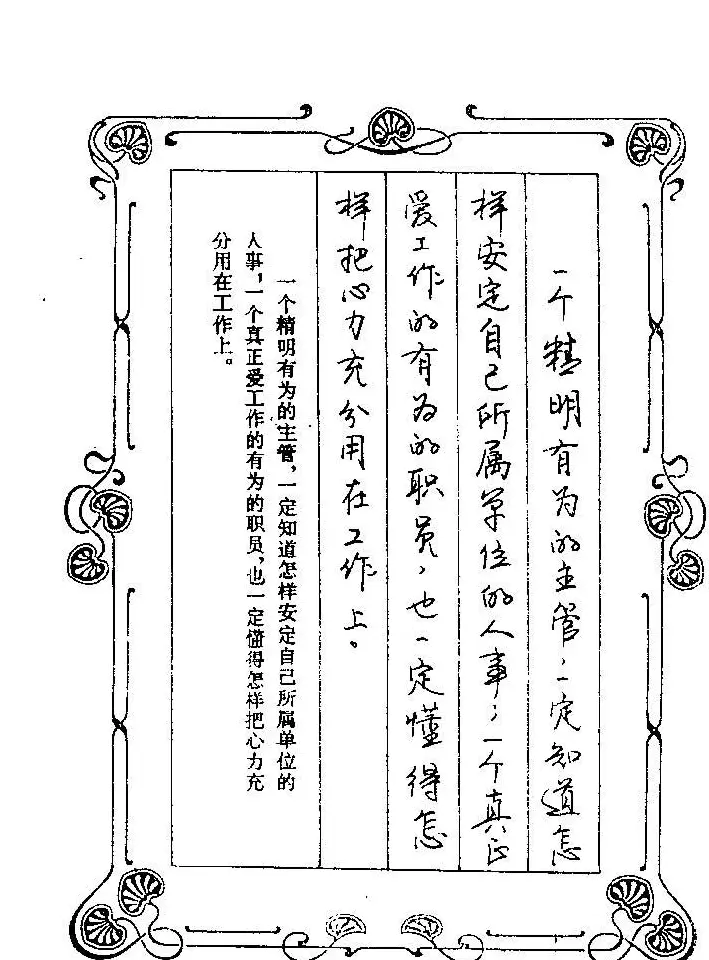 一个精明有为的主管，一定知道怎
样安定自己所属单位的人事；一个真正
爱工作的有为的职员，也一定懂得怎
样把心力充分用在工作上。
一个精明有为的主管，一定知道怎样安定自己所属单位的
人事，一个真正爱工作的有为的职员，也一定懂得怎样把心力充
分用在工作上。